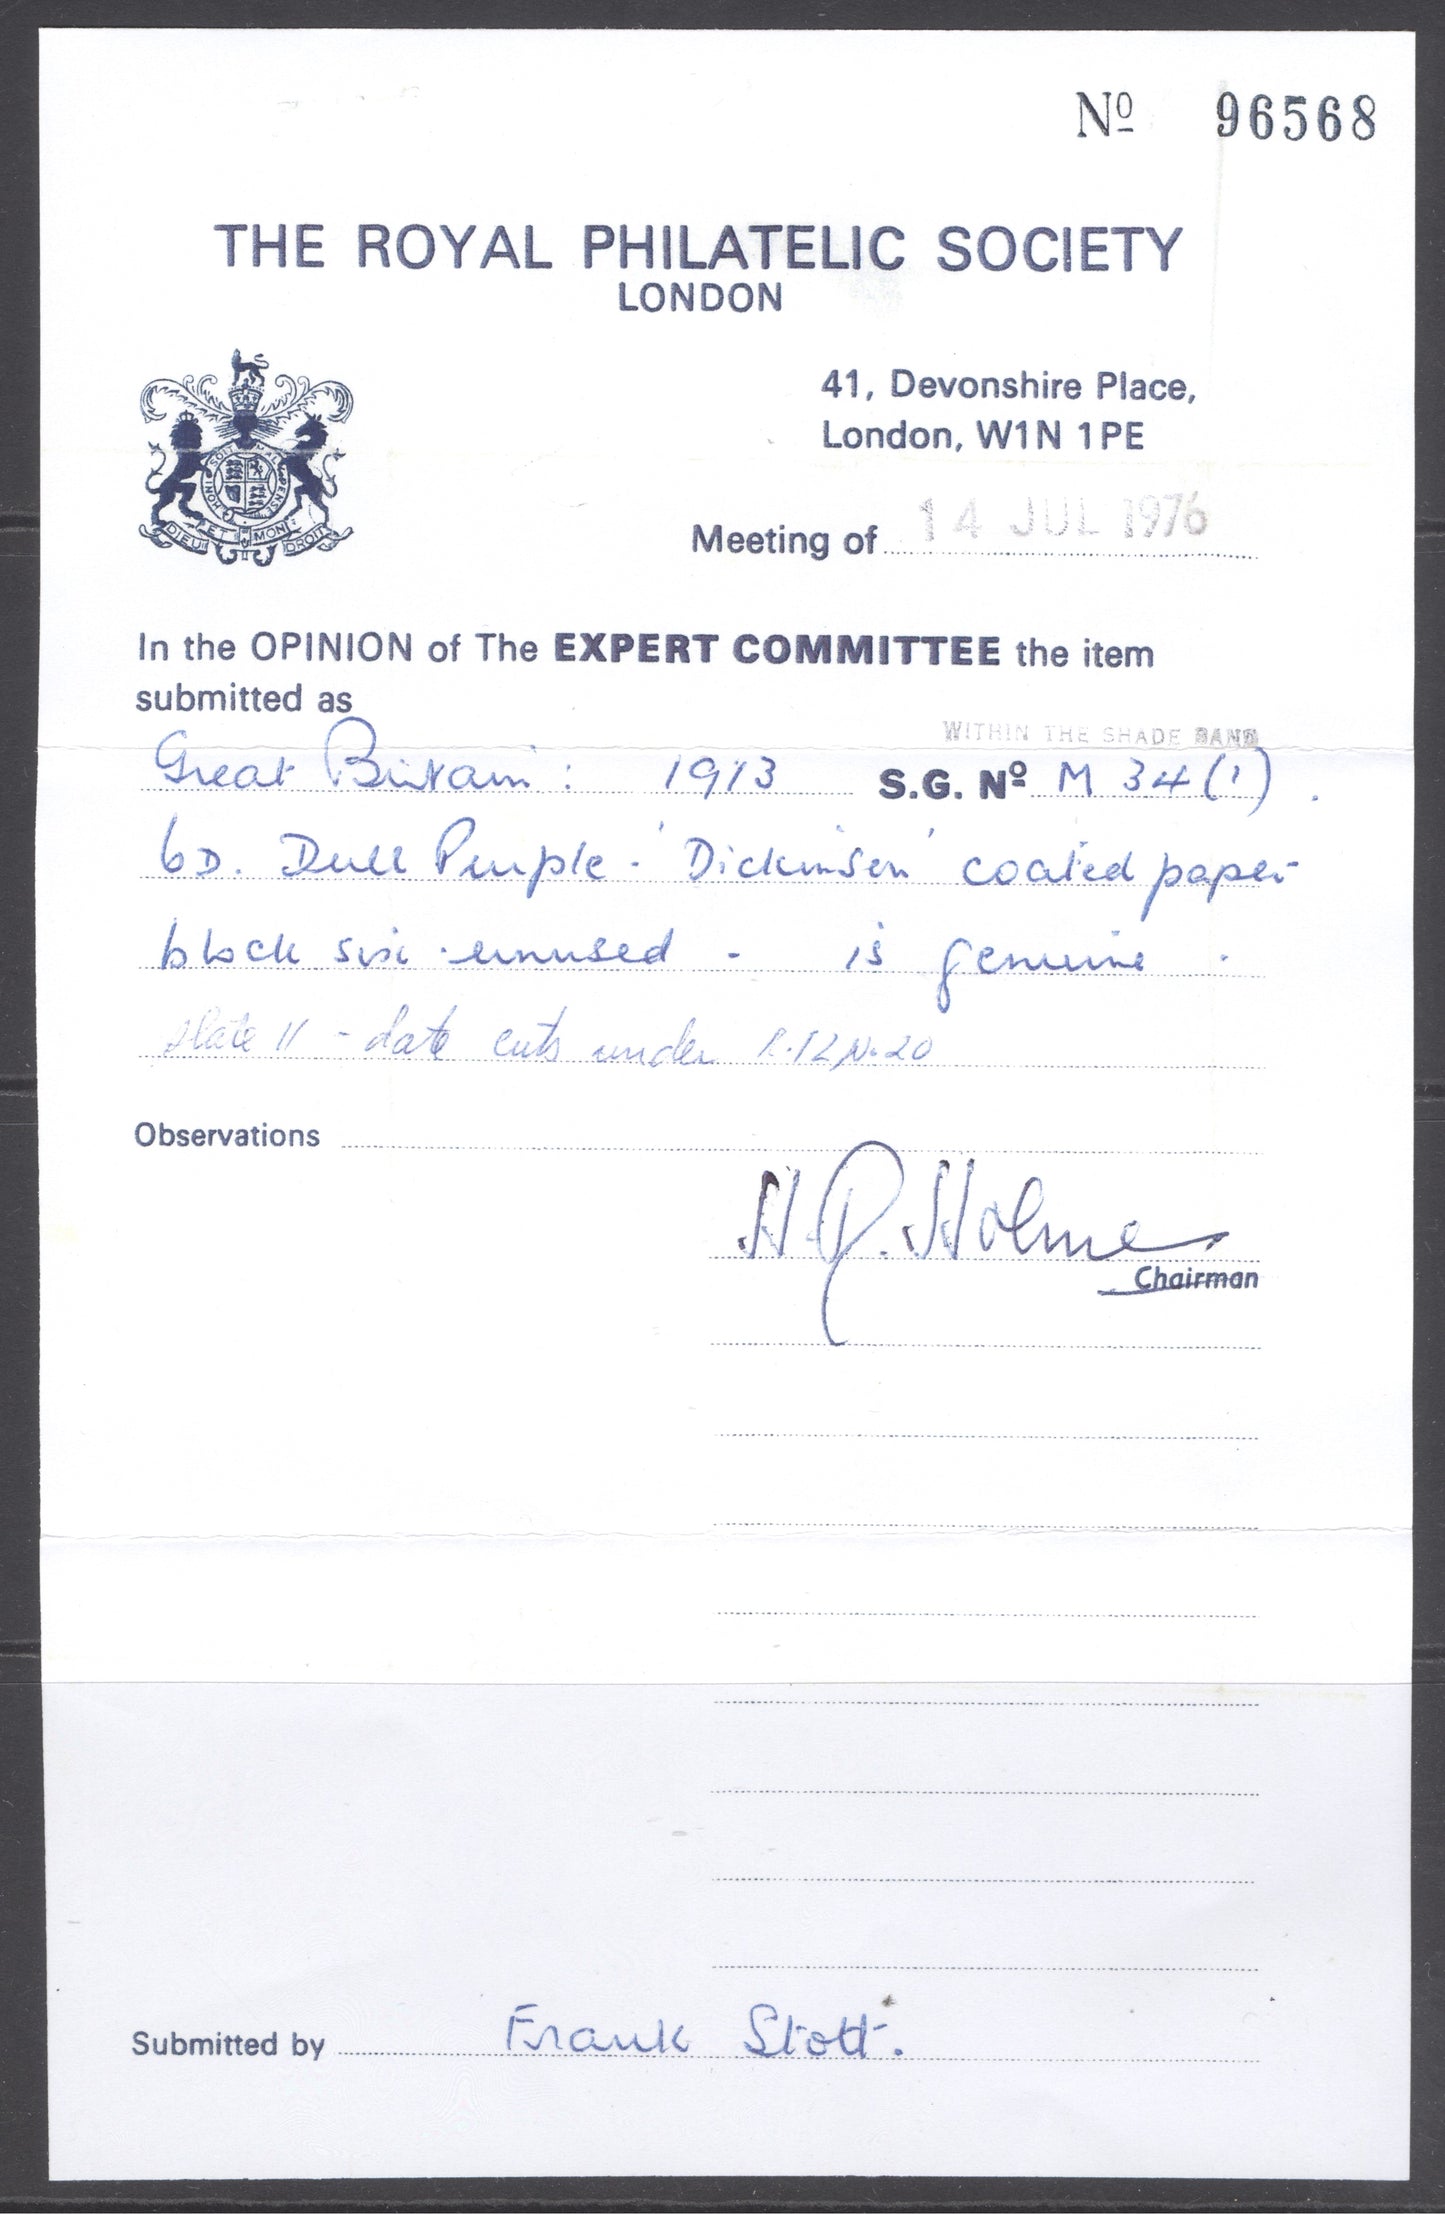 Nº 96568
THE ROYAL PHILATELIC SOCIETY
LONDON
41, Devonshire Place,
London, W1N 1PE
DIEU ET MON DROIT
Meeting of 14 JUL 1976
In the OPINION of The EXPERT COMMITTEE the item
submitted as
WITHIN THE SHADE BAND
Great Britain: 1913 S.G. Nº M 34 (1).
6D. Dull Purple - 'Dickinson' coated paper
block six - unused - is genuine.
plate 11 - date cuts under R.12 No. 20
Observations
H.R. Holmes
Chairman
Submitted by Frank Stott.